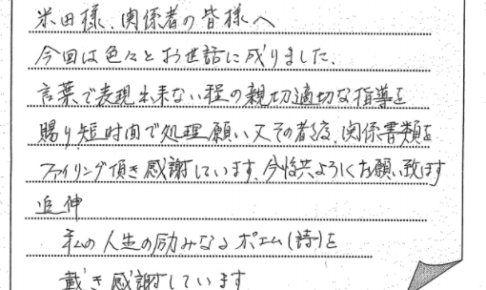 米田様、関係者の皆様へ
今回は色々とお世話に成りました、
言葉で表現出来ない程の親切適切な指導を
賜り短時間で処理願い又その都度、関係書類を
ファイリング頂き感謝しています、今後共よろしくお願い致ます
追伸
私の人生の励みなるポエム(詩)を
戴き感謝しています